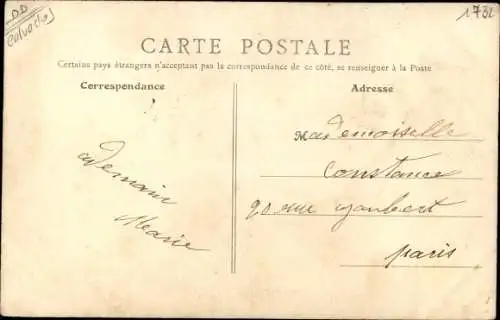 DD
Calvados
1732
CARTE POSTALE
Certains pays étrangers n'acceptant pas la correspondance de ce côté, se renseigner à la Poste
Correspondance
Adresse
a Demain
Marie
Mademoiselle
Constance
20 rue Joubert
Paris